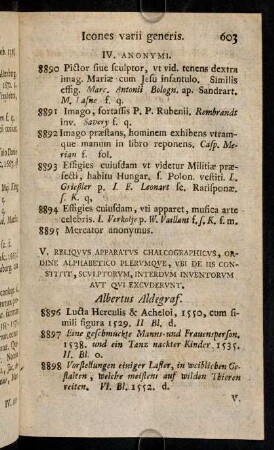 Icones varii generis. 603
IV. ANONYMI.
8890 Pictor siue sculptor, vt vid. tenens dextra
imag. Mariæ cum Jesu infantulo. Similis
effig. Marc. Antonii Bologn. ap. Sandrart.
M. Lasne f. q.
8891 Imago, fortassis P. P. Rubenii. Rembrandt
inv. Savery f. q.
8892 Imago præstans, hominem exhibens vtram-
que manum in libro reponens, Casp. Me-
rian f. fol.
8893 Effigies cuiusdam vt videtur Militiæ præ-
fecti, habitu Hungar. s. Polon. vestiti. L.
Griesler p. I. F. Leonart sc. Ratisponæ.
f. K. q.
8894 Effigies cuiusdam, vti apparet, musica arte
celebris. I. Verkolje p. W. Vaillant f. s. K. f. m.
8895 Mercator anonymus.
V. RELIQVVS APPARATVS CHALCOGRAPHICVS, OR-
DINE ALPHABETICO PLERVMQVE, VBI DE IIS CON-
STITIT, SCVLPTORVM, INTERDVM INVENTORVM
AVT QVI EXCVDERVNT.
Albertus Aldegraf.
8896 Lucta Herculis & Acheloi, 1550, cum si-
mili figura 1529. II Bl. d.
8897 Eine geschmückte Manns-und Frauensperson.
1538. und ein Tanz nackter Kinder 1535.
II. Bl. o.
8898 Vorstellungen einiger Laster, in weiblichen Ge-
stalten, welche meistens auf wilden Thieren
reiten. VI. Bl. 1552. d.
V.